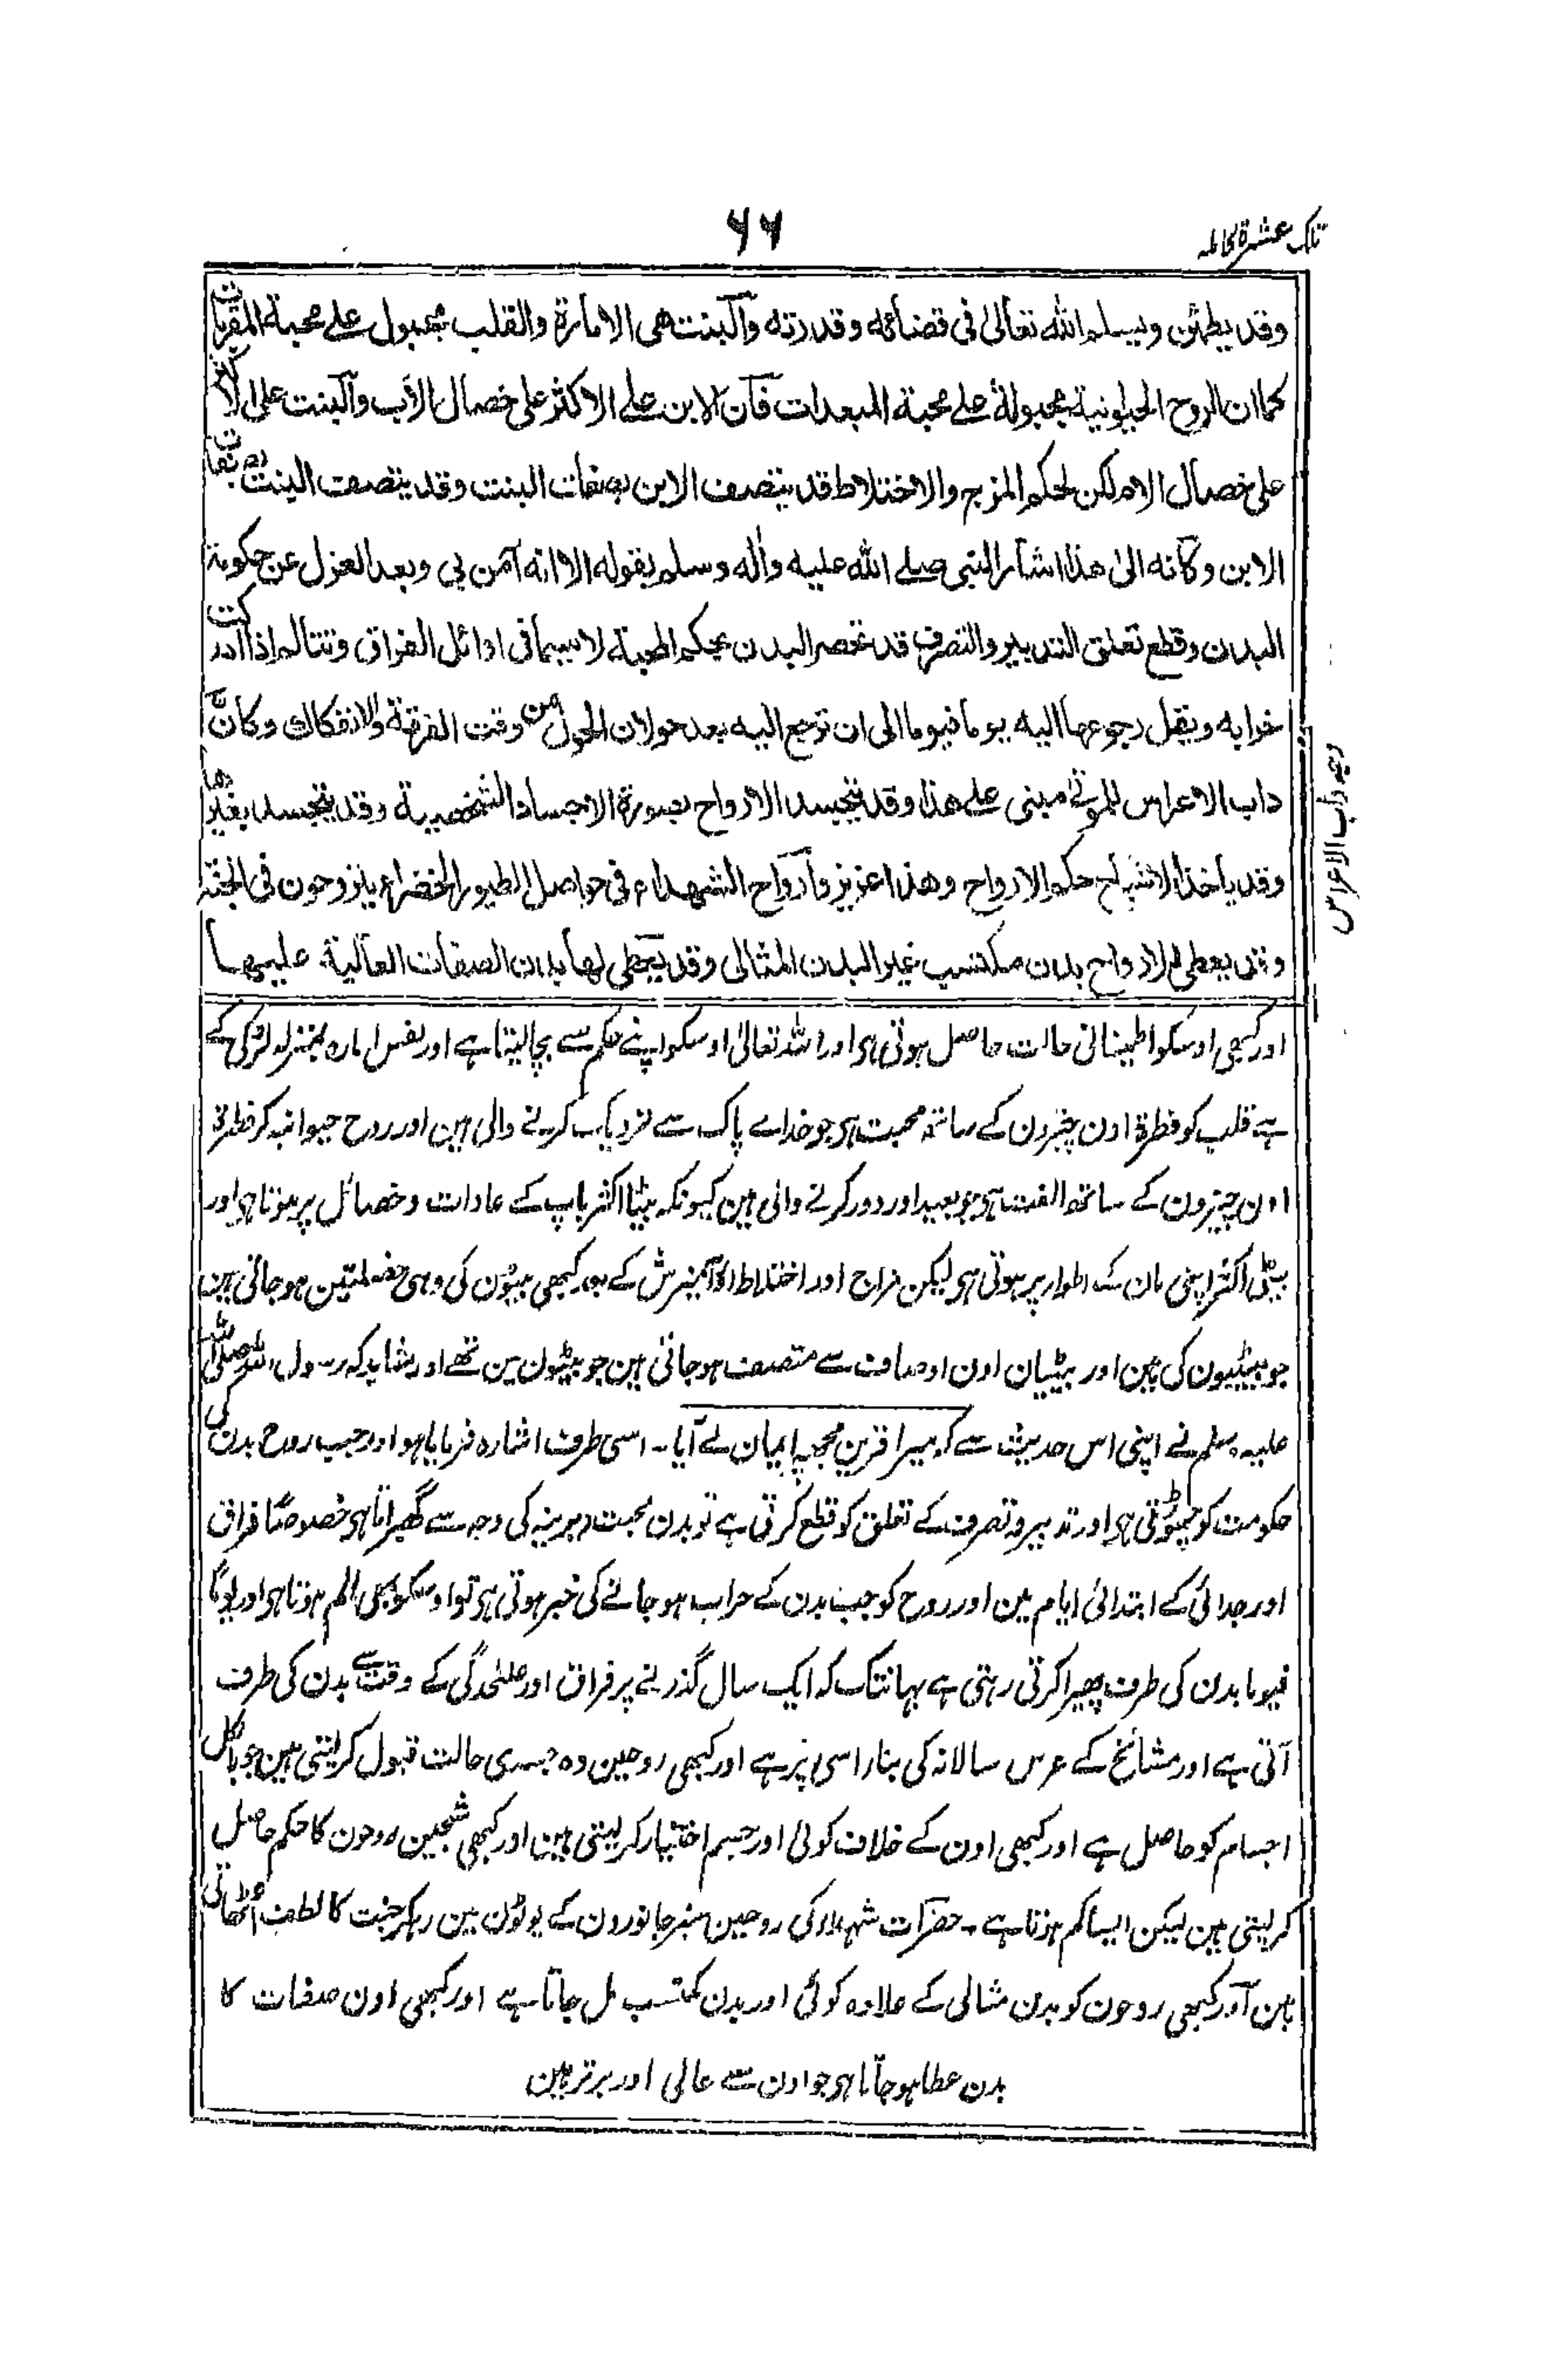 تلک عشرة کاملہ
۶۶
وقد يطمئن ويسلم الله تعالىٰ فى قضائه وقدرته وآلبنت هى الامارة والقلب مجبول علے محبة المقربات
كما ان الروح الحيوانية مجبولة علے محبة المبعدات فآن الابن علے الاكثر على خصال الاب وآلبنت على الاكثر
على خصال الام لكن لحكم المزج والاختلاط قد يتصف الابن بصفات البنت وقد يتصف البنت بصفات
الابن وكانه الىٰ هذا اشار النبى صلے الله عليه واٰله وسلم بقوله الا انه آمن بي وبعد العزل عن حكومة
البدن وقطع تعلق التدبير والتصرف قد تحصر البدن بحكم المحبة لا سيما فى اوائل الفراق وتتالم اذا ادركت
خرابه ويقل رجوعها اليه يوما فيوما الى ان ترجع اليه بعد حولان الحول من وقت الفرقة والانفكاك وكانّ
داب الاعراس للموتٰى مبنى علے هذا وقد يتجسد الارواح بصورة الاجساد الشخصية وقد يتجسد بغيرها
وقد ياخذ الاشباح حكم الارواح وهذا عزيز وآرواح الشهداء فى حواصل الطيور الخضراء يتروحون فى الجنة
وقد يعطى للارواح بدن مكتسب غير البدن المثالى وقد يعطى لها بدن الصفات العالية عليها
وجہ داب الاعراس
اور کبھی اوسکو اطمینانی حالت حاصل ہوتی ہی اور اللہ تعالیٰ اوسکو اپنے حکم سے بچالیتا ہے اور نفس امارہ بمنزلہ لڑکی کے
ہے قلب کو فطرۃ اون چیزون کے ساتھ محبت ہی جو خداے پاک سے نزدیک کرنے والی ہین اور روح حیوانیہ کو فطرۃ
اون چیزون کے ساتھ الفت ہی جو بعید اور دور کرنے والی ہین کیونکہ بیٹا اکثر باپ کے عادات و خصائل پر ہوتا ہی اور
بیٹی اکثر اپنی مان کے اطوار پر ہوتی ہی لیکن مزاج اور اختلاط اور آمیزش کے بعد کبھی بیٹون کی وہی خصلتین ہوجاتی ہین
جو بیٹیون کی ہین اور بیٹیان اون اوصاف سے متصف ہوجاتی ہین جو بیٹون مین تھے اور شاید کہ رسول اللہ صلی اللہ
علیہ وسلم نے اپنی اس حدیث سے کہ میرا قرین مجھپر ایمان لے آیا۔ اسی طرف اشارہ فرمایا ہو اور جب روح بدن کی
حکومت کو چھوڑتی ہی اور تدبیر و تصرف کے تعلق کو قطع کرتی ہے تو بدن محبت دیرینہ کی وجہ سے گھبراتا ہی خصوصًا فراق
اور جدائی کے ابتدائی ایام مین اور روح کو جب بدن کے خراب ہو جانے کی خبر ہوتی ہی تو اوسکو بھی الم ہوتا ہی اور یومًا
فیوما بدن کی طرف پھیرا کرتی رہتی ہے یہانتک کہ ایک سال گذرنے پر فراق اور علٰحدگی کے وقت سے بدن کی طرف
آتی ہے اور مشائخ کے عرس سالانہ کی بنار اسی پر ہے اور کبھی روحین وہ جسدی حالت قبول کرلیتی ہین جو بالکل
اجسام کو حاصل ہے اور کبھی اون کے خلاف کوئی اور جسم اختیار کرلیتی ہین اور کبھی شبحین روحون کا حکم حاصل
کرلیتی ہین لیکن ایسا کم ہوتا ہے۔ حضرات شہداء کی روحین سبز جانورون کے پوٹون مین رہکر جنت کا لطف اُٹھاتی
ہین آور کبھی روحون کو بدن مثالی کے علاوہ کوئی اور بدن مکتسب مل جاتا ہے اور کبھی اون صفات کا
بدن عطا ہوجاتا ہی جو اون سے عالی اور برتر ہین